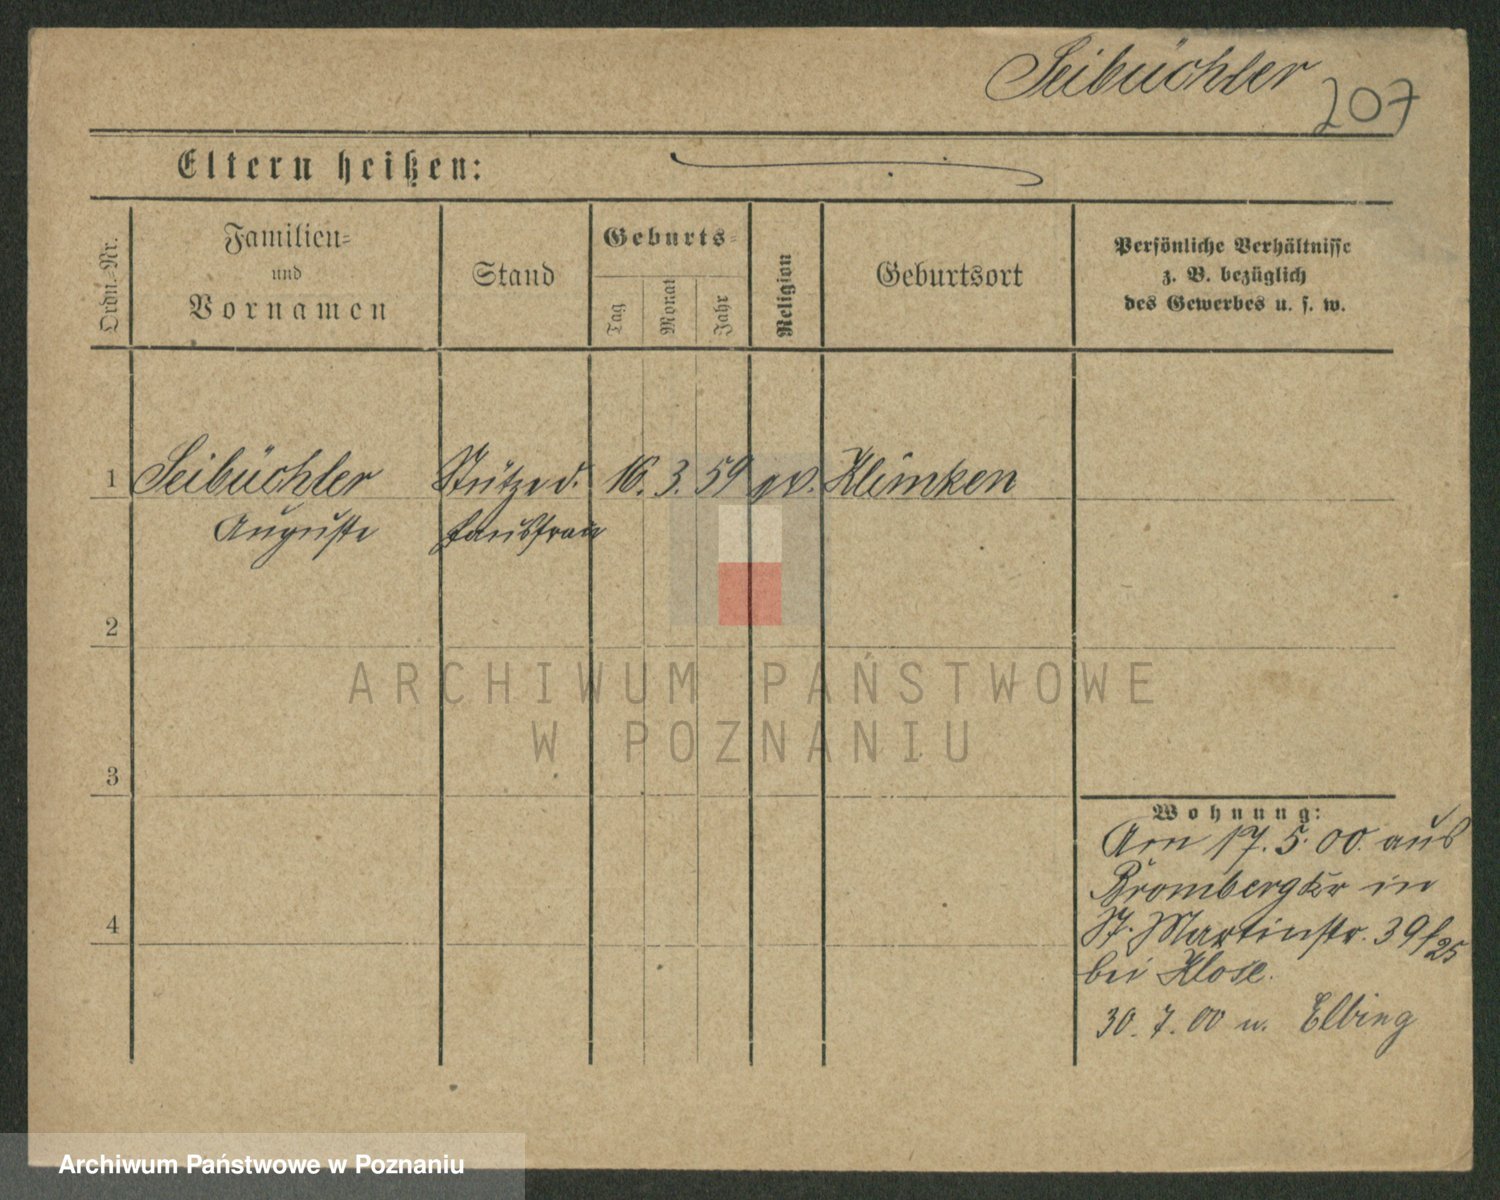 Seibüchler
207
Eltern heißen:
Ordn.-Nr.
Familien-
und
Vornamen
Stand
Geburts-
Tag
Monat
Jahr
Religion
Geburtsort
Persönliche Verhältnisse
z. B. bezüglich
des Gewerbes u. s. w.
1 Seibüchler Stütze d. 16. 3. 59 ev. Klimken
Auguste Hausfrau
2
ARCHIWUM PAŃSTWOWE
W POZNANIU
3
4
Wohnung:
Am 17. 5. 00. aus
Bromberg in
St. Martinstr. 39/25
bei Klose.
30. 7. 00 n. Elbing
Archiwum Państwowe w Poznaniu